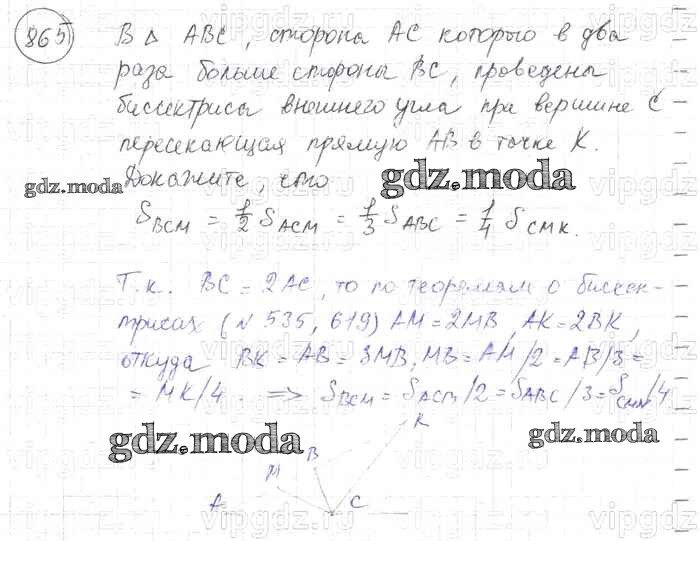 865
В △ ABC, сторона AC которого в два
раза больше стороны BC, проведены
биссектрисы внешнего угла при вершине C
пересекающая прямую AB в точке K.
Докажите, что
gdz.moda
gdz.moda
S_BCM = 1/2 S_ACM = 1/3 S_ABC = 1/4 S_CMK.
Т.к. BC = 2AC, то по теоремам о биссек-
трисах (№ 535, 619) AM = 2MB, AK = 2BK,
откуда BK = AB = 3MB, MB = AM/2 = AB/3 =
= MK/4. => S_BCM = S_ACM/2 = S_ABC/3 = S_CMK/4
gdz.moda
gdz.moda
K
B
M
A
C
vipgdz.com